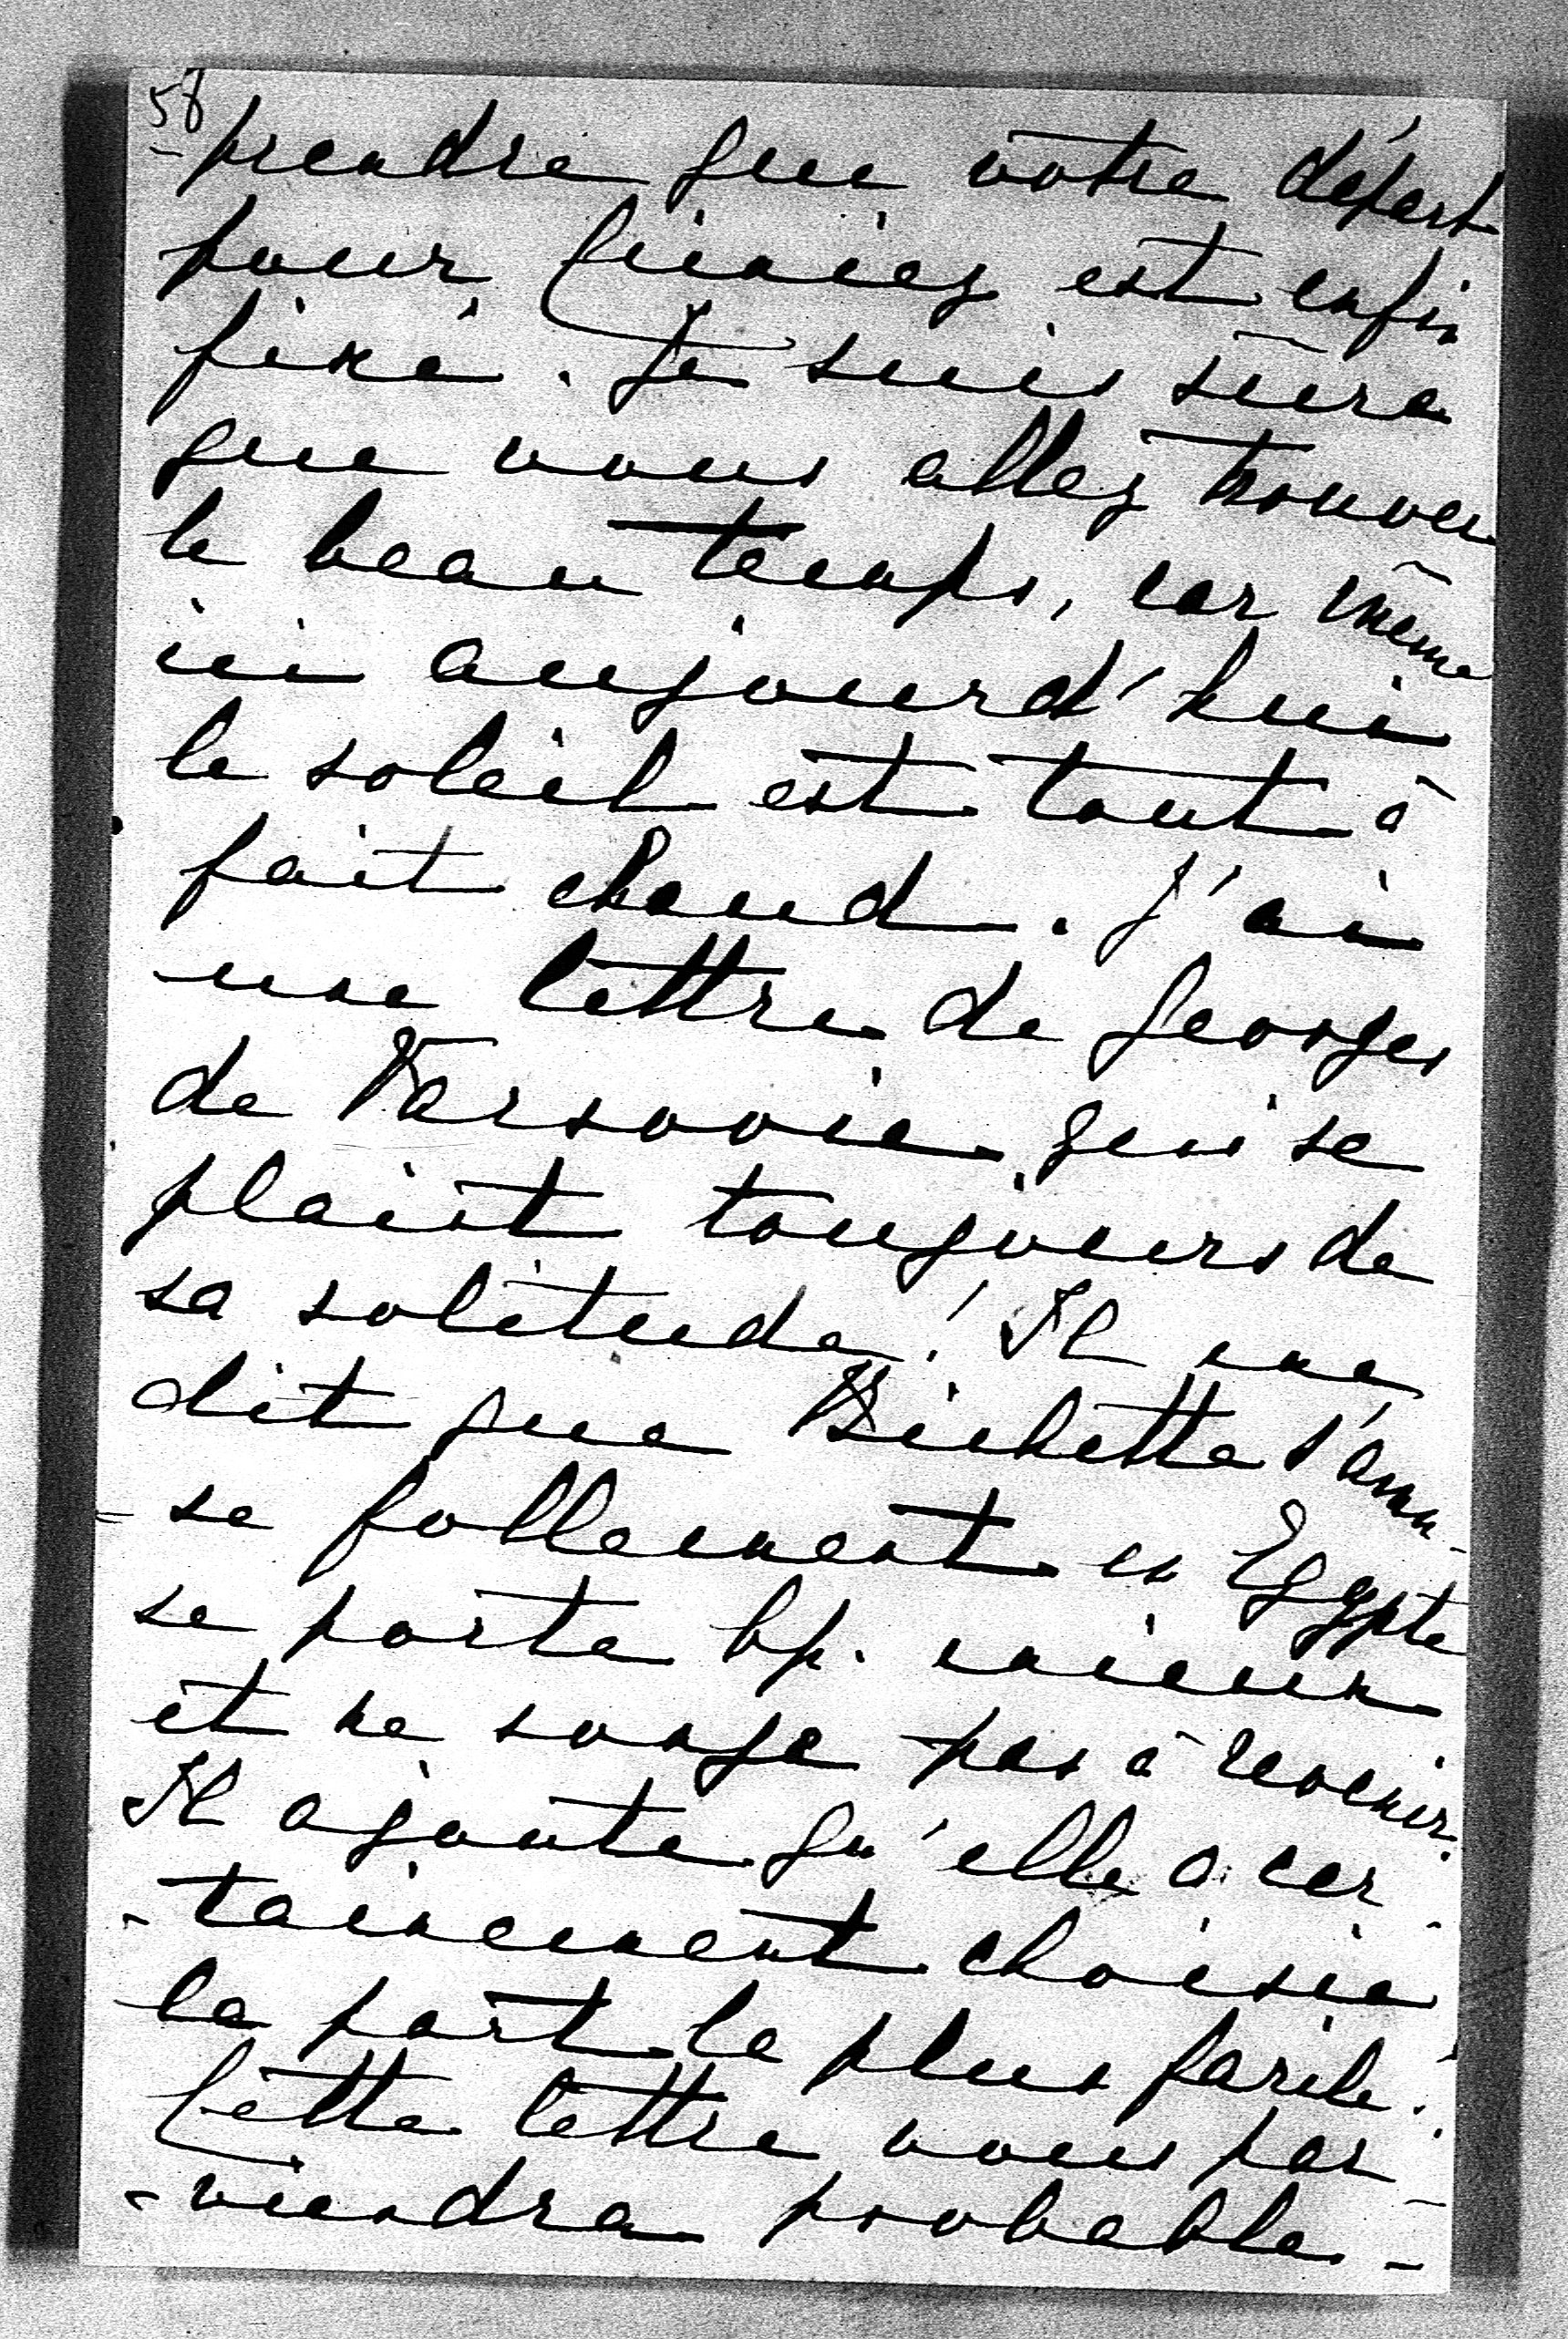 58
prendre que votre départ
pour Cimiez est enfin
fixé. Je suis sûre
que vous allez trouver
le beau temps, car même
ici aujourd'hui
le soleil est tout à
fait chaud. J'ai
une lettre de Georges
de Varsovie qui se
plaint toujours de
sa solitude! Il me
dit que Bichette s'amu-
se follement en Egypte
se porte bp. mieux
et ne songe pas à revenir.
Il ajoute qu'elle a cer-
-tainement choisie
la part la plus facile!
Cette lettre vous par-
-viendra probable-